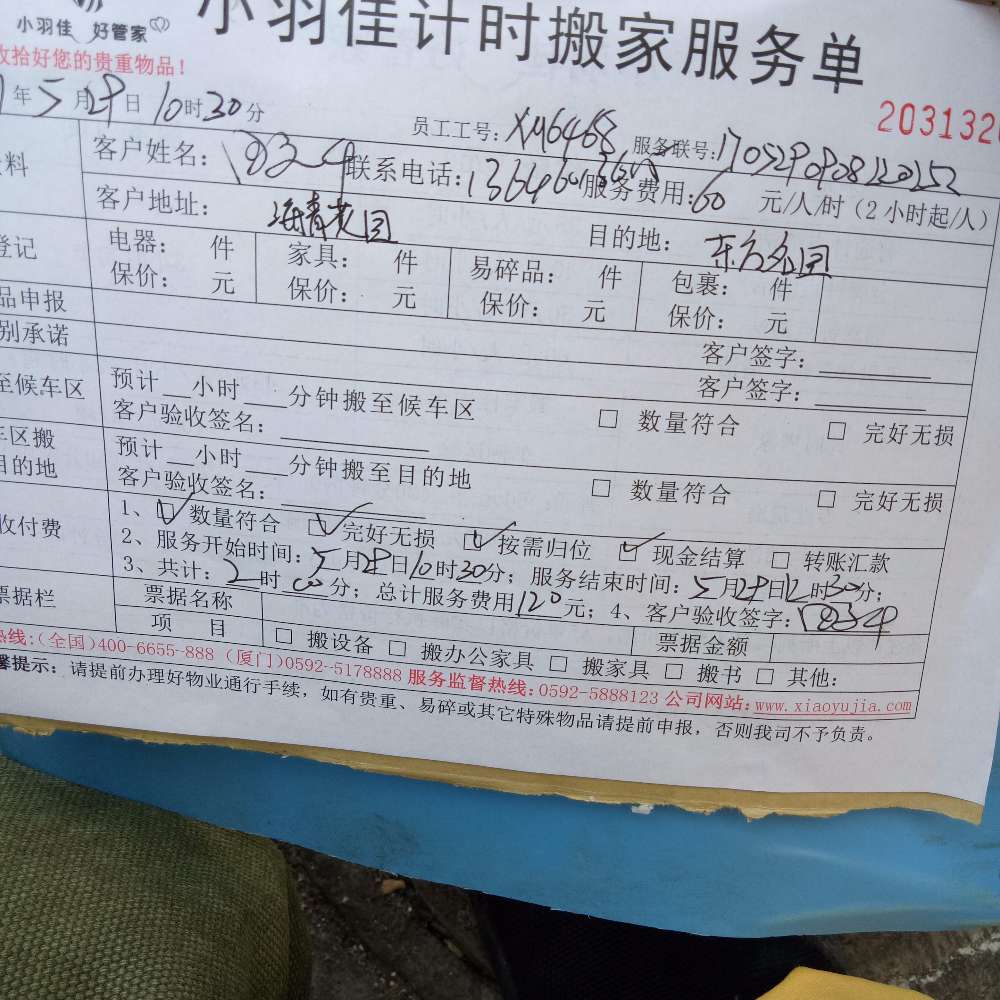 小羽佳 好管家
小羽佳计时搬家服务单
收拾好您的贵重物品！
年5月29日10时30分
员工工号：XM6468
服务联号：1705290908220252
203132
料
客户姓名：
联系电话：
服务费用：60 元/人/时（2小时起/人）
客户地址：海青花园
目的地：东方名园
登记
电器： 件
家具： 件
易碎品： 件
包裹： 件
保价： 元
保价： 元
保价： 元
保价： 元
品申报
客户签字：
别承诺
客户签字：
至候车区
预计__小时__分钟搬至候车区
客户验收签名：
□ 数量符合 □ 完好无损
车区搬
目的地
预计__小时__分钟搬至目的地
客户验收签名：
□ 数量符合 □ 完好无损
收付费
1、☑数量符合 ☑完好无损 ☑按需归位 ☑现金结算 □ 转账汇款
2、服务开始时间：5月29日10时30分；服务结束时间：5月29日12时30分；
3、共计：2时00分；总计服务费用120元；4、客户验收签字：
票据栏
票据名称
票据金额
项 目
□ 搬设备 □ 搬办公家具 □ 搬家具 □ 搬书 □ 其他：
热线：（全国）400-6655-888（厦门）0592-5178888 服务监督热线：0592-5888123 公司网站：www.xiaoyujia.com
馨提示：请提前办理好物业通行手续，如有贵重、易碎或其它特殊物品请提前申报，否则我司不予负责。